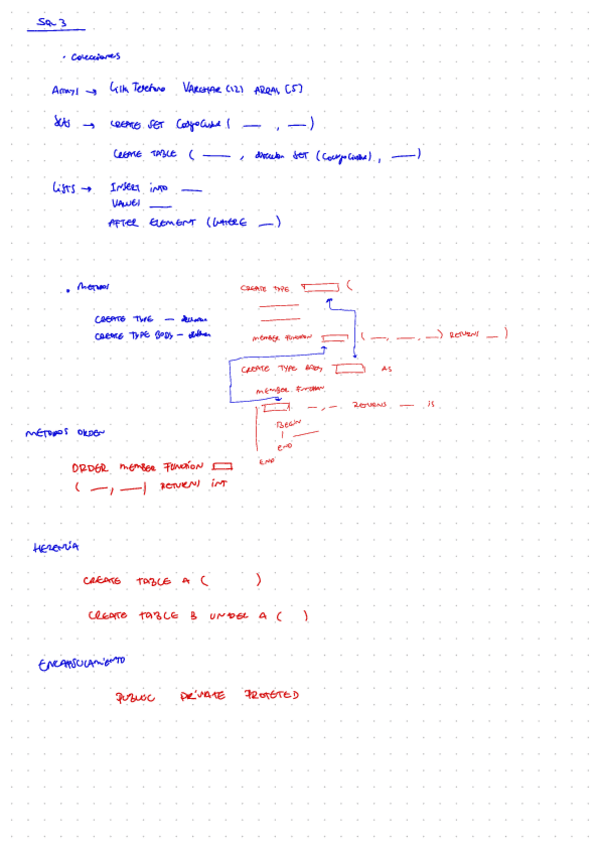 SQL 3
• Colecciones
Arrays → Lista Telefono VARCHAR (12) ARRAY [5]
Sets → CREATE SET CodigoCliente ( __ , __ )
CREATE TABLE ( __ , direccion SET (CodigoCliente), __ )
Lists → INSERT INTO __
VALUES __
AFTER ELEMENT (WHERE __)
• Metodos
CREATE TYPE (
CREATE TYPE —
CREATE TYPE BODY —
MEMBER FUNCTION ( __, __, __ ) RETURNS __ )
CREATE TYPE BODY AS
MEMBER FUNCTION
__, __ RETURNS __ IS
BEGIN
END
END
METODOS ORDEN
ORDER MEMBER FUNCTION
( __, __ ) RETURNS INT
HERENCIA
CREATE TABLE A ( )
CREATE TABLE B UNDER A ( )
ENCAPSULAMIENTO
PUBLIC PRIVATE PROTETED